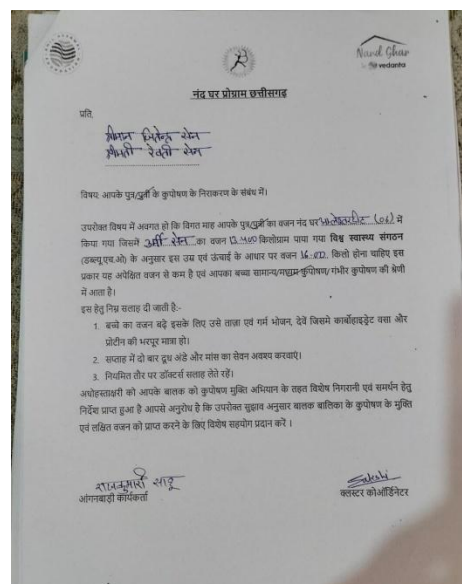 Nand Ghar
vedanta
नंद घर प्रोग्राम छत्तीसगढ़
प्रति,
श्रीमान जितेन्द्र सेन
श्रीमती रेवती सेन
विषय: आपके पुत्र/पुत्री के कुपोषण के निराकरण के संबंध में।
उपरोक्त विषय में अवगत हो कि विगत माह आपके पुत्र/पुत्री का वजन नंद घर (04) में
किया गया जिसमें उर्मी सेन का वजन 13.400 किलोग्राम पाया गया विश्व स्वास्थ्य संगठन
(डब्ल्यू.एच.ओ) के अनुसार इस उम्र एवं ऊंचाई के आधार पर वजन 16.00 किलो होना चाहिए इस
प्रकार यह अपेक्षित वजन से कम है एवं आपका बच्चा सामान्य/मध्यम कुपोषण/गंभीर कुपोषण की श्रेणी
में आता है।
इस हेतु निम्न सलाह दी जाती है:-
1. बच्चे का वजन बढ़े इसके लिए उसे ताज़ा एवं गर्म भोजन, देवें जिसमे कार्बोहाइड्रेट वसा और
प्रोटीन की भरपूर मात्रा हो।
2. सप्ताह में दो बार दूध अंडे और मांस का सेवन अवश्य करवाएं।
3. नियमित तौर पर डॉक्टर्स सलाह लेते रहें।
अधोहस्ताक्षरी को आपके बालक को कुपोषण मुक्ति अभियान के तहत विशेष निगरानी एवं समर्थन हेतु
निर्देश प्राप्त हुआ है आपसे अनुरोध है कि उपरोक्त सुझाव अनुसार बालक बालिका के कुपोषण के मुक्ति
एवं लक्षित वजन को प्राप्त करने के लिए विशेष सहयोग प्रदान करें ।
राजकुमारी साहू
आंगनबाड़ी कार्यकर्ता
Sakshi
क्लस्टर कोऑर्डिनेटर